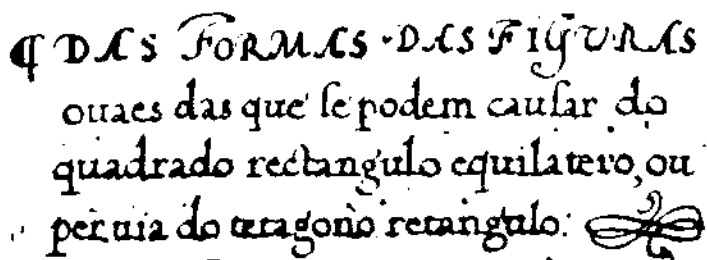 ¶ DAS FORMAS · DAS FIGURAS
ouaes das que ſe podem cauſar do
quadrado rectangulo equilatero, ou
per uia do tetragono retangulo: